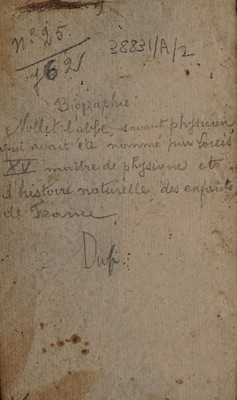 No. 25.
62
38831/A/2
Biographie.
Nollet l'abbé, savant physicien
qui avait été nommé par Louis
XV maître de physique et
d'histoire naturelle des enfants
de France